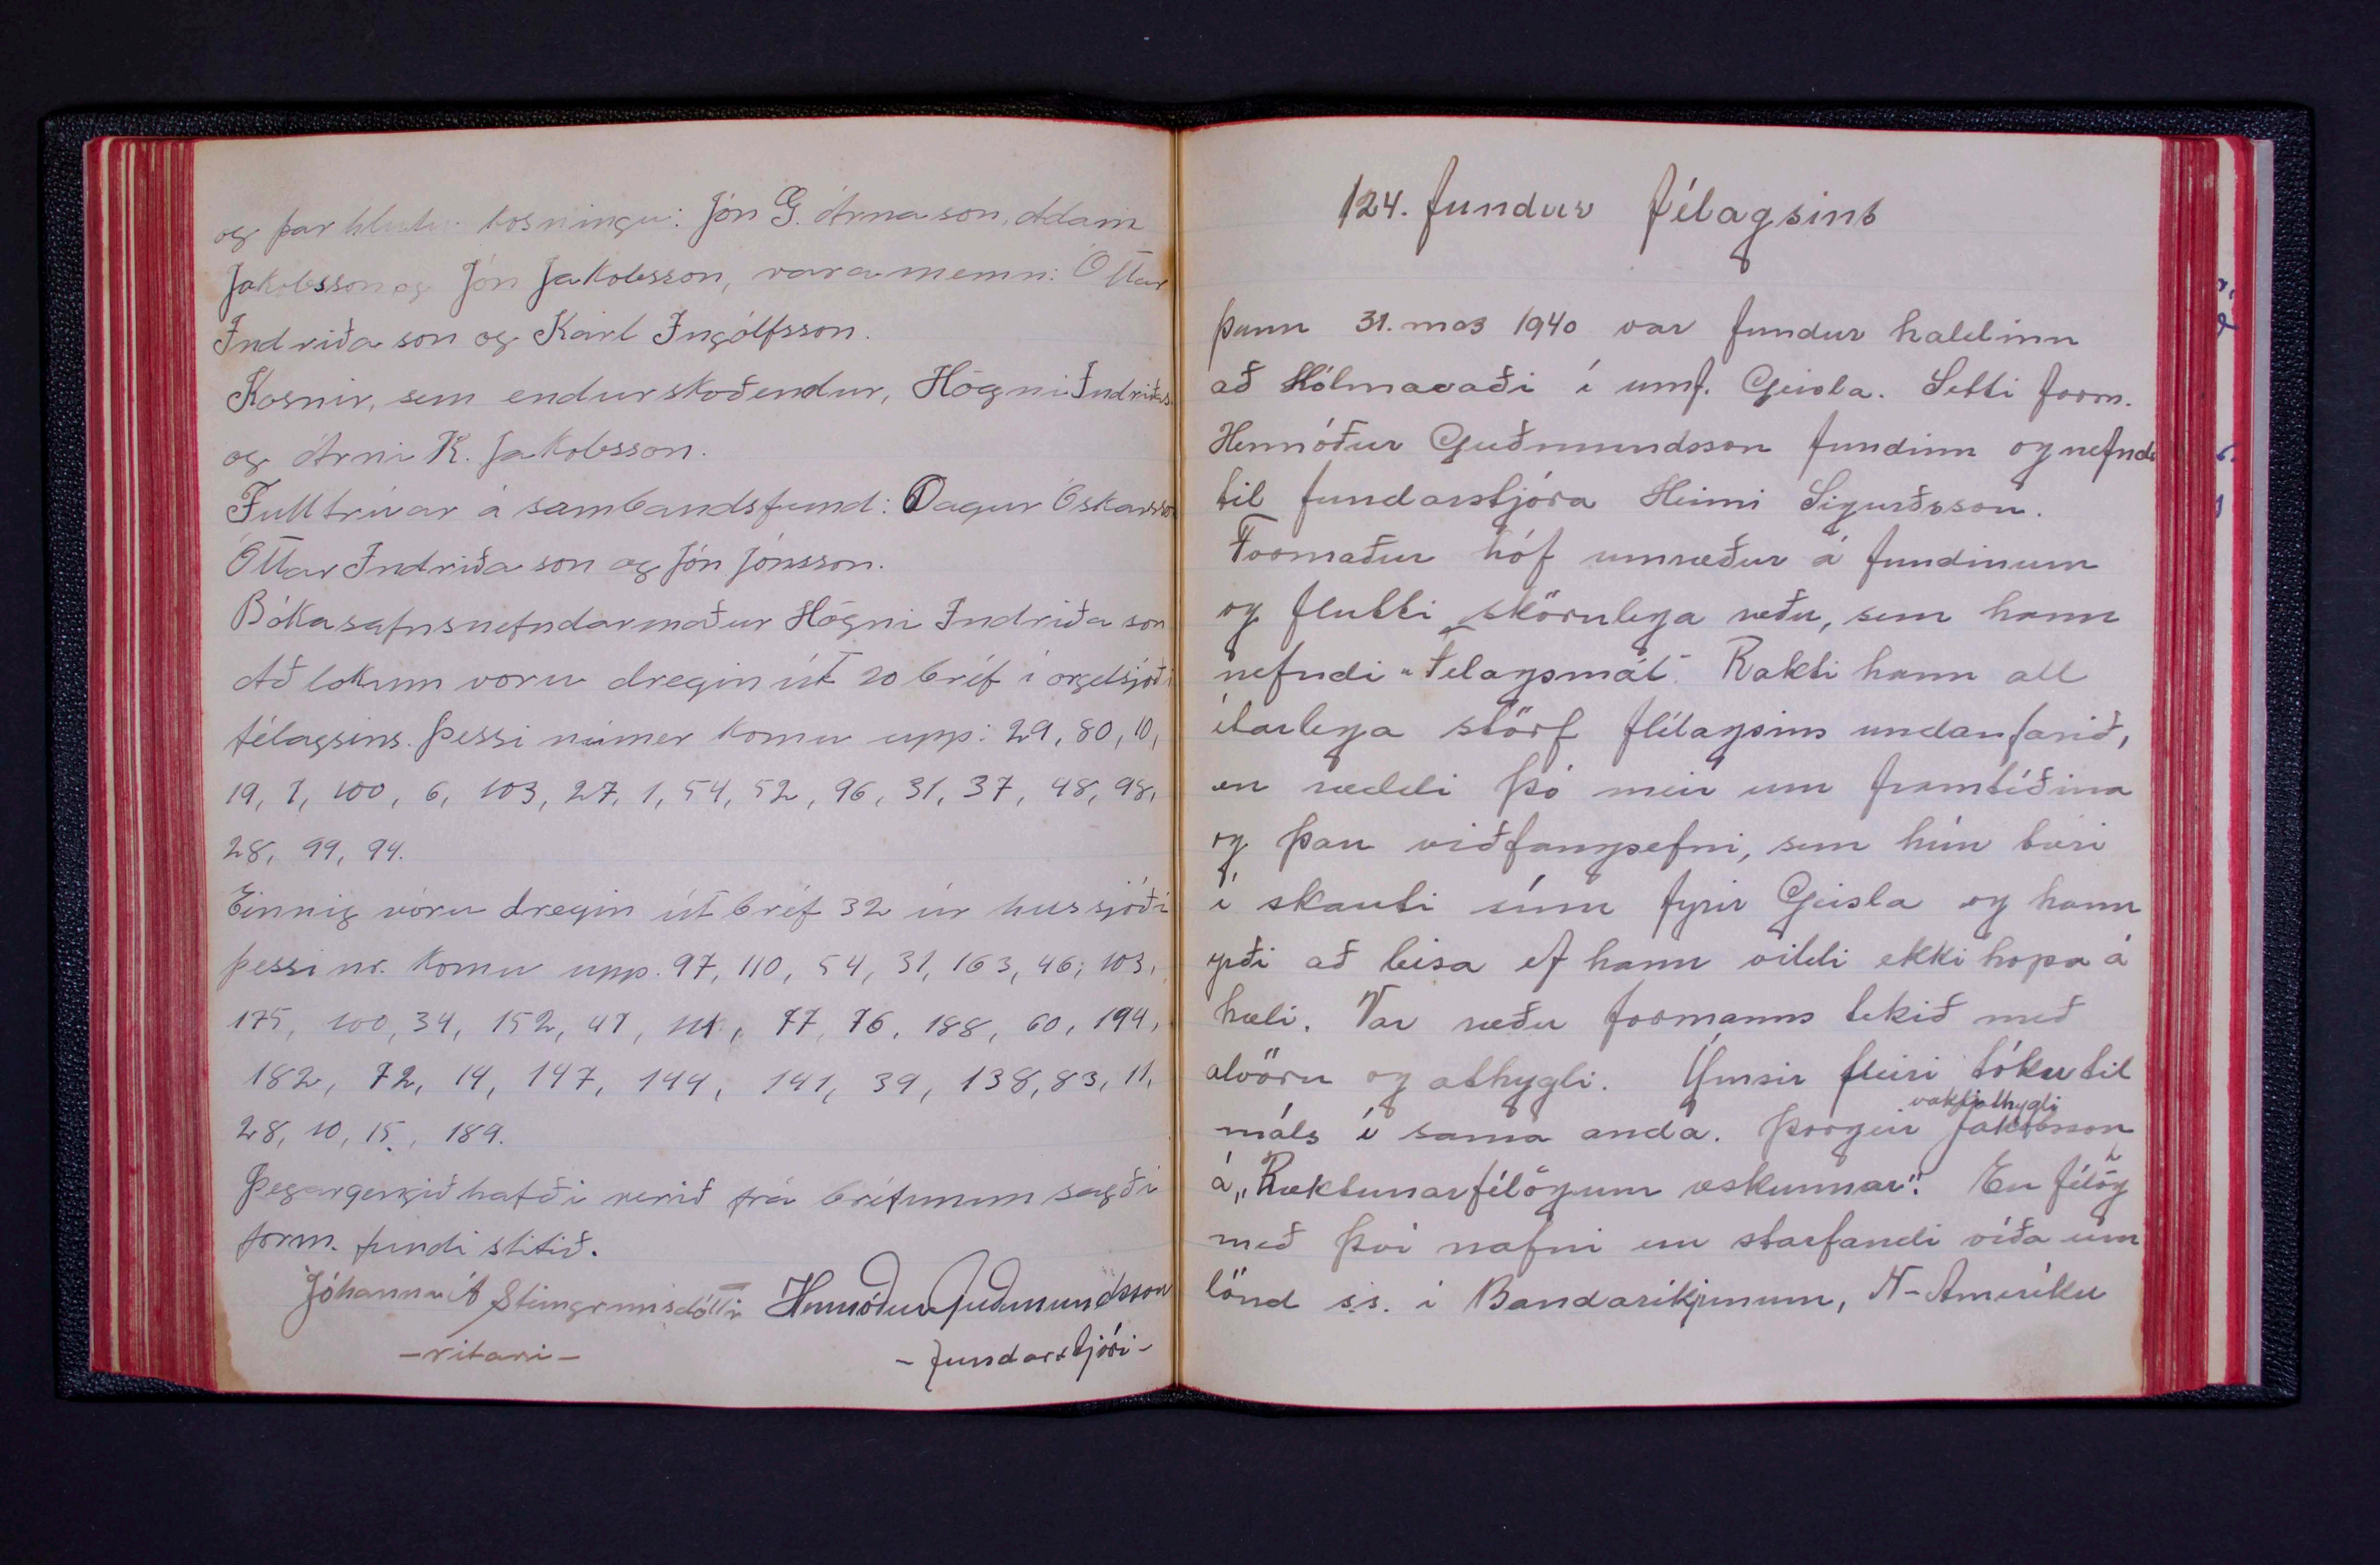 og þar hlutu kosningu: Jón G. Árnason, Adam
Jakobsson og Jón Jakobsson, varamenn: Óttar
Indriðason og Karl Ingólfsson.
Kosnir, sem endurskoðendur, Högni Indriðas.
og Árni K. Jakobsson.
Fulltrúar á sambandsfund: Dagur Óskarsson
Óttar Indriðason og Jón Jónsson.
Bókasafnsnefndarmaður Högni Indriðason
Að lokum voru dregin út 20 bréf í orgelsjóði
félagsins. Þessi númer komu upp: 29, 80, 10,
19, 7, 100, 6, 103, 27, 1, 54, 52, 96, 31, 37, 48, 98,
28, 99, 94.
Einnig vóru dregin út bréf 32 úr hussjóði
þessi nr. komu upp. 97, 110, 54, 31, 163, 46, 103,
175, 100, 34, 152, 47, 77, 76, 188, 60, 194,
182, 72, 14, 147, 144, 141, 39, 138, 83, 11,
28, 10, 15, 189.
Þegar gengið hafði verið frá bréfunum sagði
form. fundi slitið.
Jóhanna A Steingrímsdóttir Hermóður Guðmundsson
- ritari -
- fundarstjóri -
124. fundur félagsins
Þann 31. mas 1940 var fundur haldinn
að Hólmavaði í umf. Geisla. Setti form.
Hermóður Guðmundsson fundinn og nefndi
til fundarstjóra Heimi Sigurðsson.
Formaður hóf umræður á fundinum
og flutti skörulega ræðu, sem hann
nefndi "Félagsmál". Rakti hann all
ítarlega störf félagsins undanfarið,
en ræddi þó meir um framtíðina
og þau viðfangsefni, sem hún bæri
í skauti sínu fyrir Geisla og hann
yrði að leisa ef hann vildi ekki hopa á
hæli. Var ræðu formanns tekið með
alvöru og athygli. Ýmsir fleiri tóku til
máls í sama anda. Þorgeir Jakobsson vakti athygli
á „Ræktunarfélögum æskunnar". En félög
með því nafni eru starfandi víða um
lönd s.s. í Bandaríkjunum, N-Ameríku